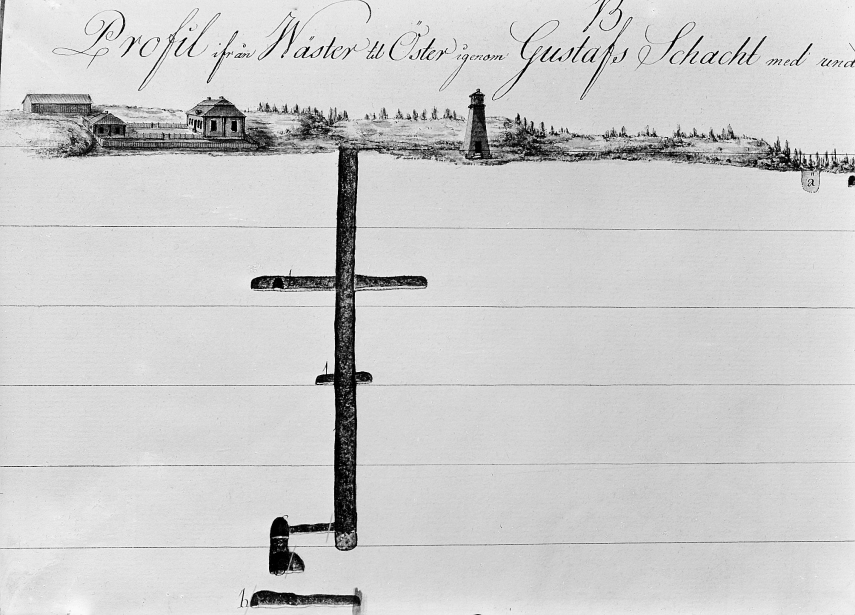 B
Profil ifrån Wäster til Öster igenom Gustafs Schacht med rund
a
h